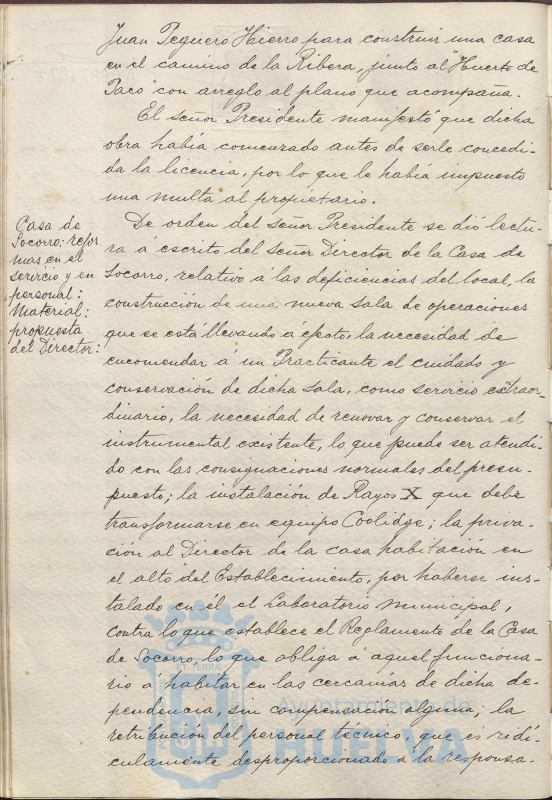 Juan Peguero Hierro para construir una casa
en el camino de la Ribera, junto al "Huerto de
Paco" con arreglo al plano que acompaña.
El señor Presidente manifestó que dicha
obra había comenzado antes de serle concedi-
da la licencia, por lo que le había impuesto
una multa al propietario.
Casa de
Socorro: refor
mas en el
servicio y en
personal:
Material:
propuesta
del Director:
De orden del señor Presidente se dió lectu-
ra á escrito del señor Director de la Casa de
Socorro, relativo á las deficiencias del local, la
construcción de una nueva sala de operaciones
que se está llevando á efecto, la necesidad de
encomendar á un Practicante el cuidado y
conservación de dicha sala, como servicio extraor-
dinario, la necesidad de renovar y conservar el
instrumental existente, lo que puede ser atendi-
do con las consignaciones normales del presu-
puesto; la instalación de Rayos X que debe
transformarse en equipo Coolidge; la priva-
ción al Director de la casa habitación en
el alto del Establecimiento, por haberse ins-
talado en él el Laboratorio Municipal,
contra lo que establece el Reglamento de la Casa
de Socorro, lo que obliga á aquel funciona-
rio á habitar en las cercanías de dicha de-
pendencia, sin compensación alguna; la
retribución del personal técnico, que es ridí-
culamente desproporcionado á la responsa-
Ayuntamiento de
HUELVA